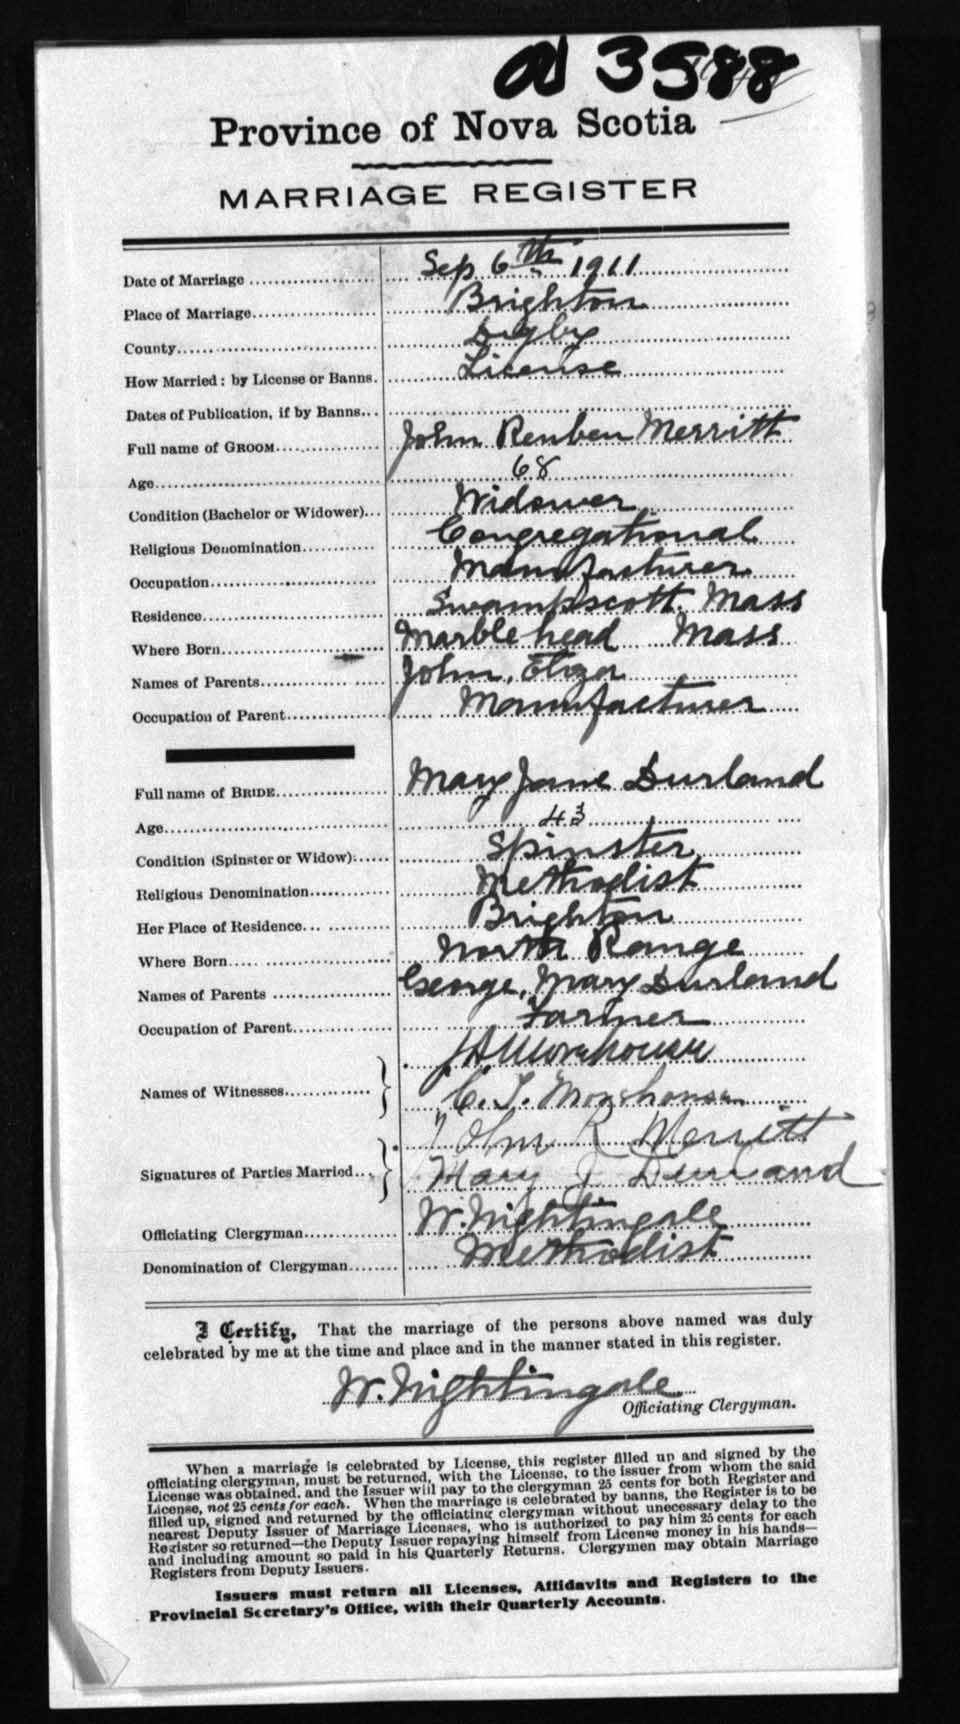 a 3588
Province of Nova Scotia
MARRIAGE REGISTER
Date of Marriage Sep 6th 1911
Place of Marriage Brighton
County Digby
How Married: by License or Banns. License
Dates of Publication, if by Banns
Full name of GROOM John Reuben Merritt
Age 68
Condition (Bachelor or Widower) Widower
Religious Denomination Congregational
Occupation Manufacturer
Residence Swampscott, Mass
Where Born Marblehead Mass
Names of Parents John, Eliza
Occupation of Parent Manufacturer
Full name of BRIDE Mary Jane Durland
Age 43
Condition (Spinster or Widow) Spinster
Religious Denomination Methodist
Her Place of Residence Brighton
Where Born North Range
Names of Parents George, Mary Durland
Occupation of Parent Farmer
J A Morehouse
Names of Witnesses
C. T. Morehouse
John R Merritt
Signatures of Parties Married
Mary J Durland
Officiating Clergyman W. Nightingale
Denomination of Clergyman Methodist
I Certify, That the marriage of the persons above named was duly
celebrated by me at the time and place and in the manner stated in this register.
W. Nightingale
Officiating Clergyman.
When a marriage is celebrated by License, this register filled up and signed by the
officiating clergyman, must be returned, with the License, to the issuer from whom the said
License was obtained, and the Issuer will pay to the clergyman 25 cents for both Register and
License, not 25 cents for each. When the marriage is celebrated by banns, the Register is to be
filled up, signed and returned by the officiating clergyman without unecessary delay to the
nearest Deputy Issuer of Marriage Licenses, who is authorized to pay him 25 cents for each
Register so returned—the Deputy Issuer repaying himself from License money in his hands—
and including amount so paid in his Quarterly Returns. Clergymen may obtain Marriage
Registers from Deputy Issuers.
Issuers must return all Licenses, Affidavits and Registers to the
Provincial Secretary's Office, with their Quarterly Accounts.